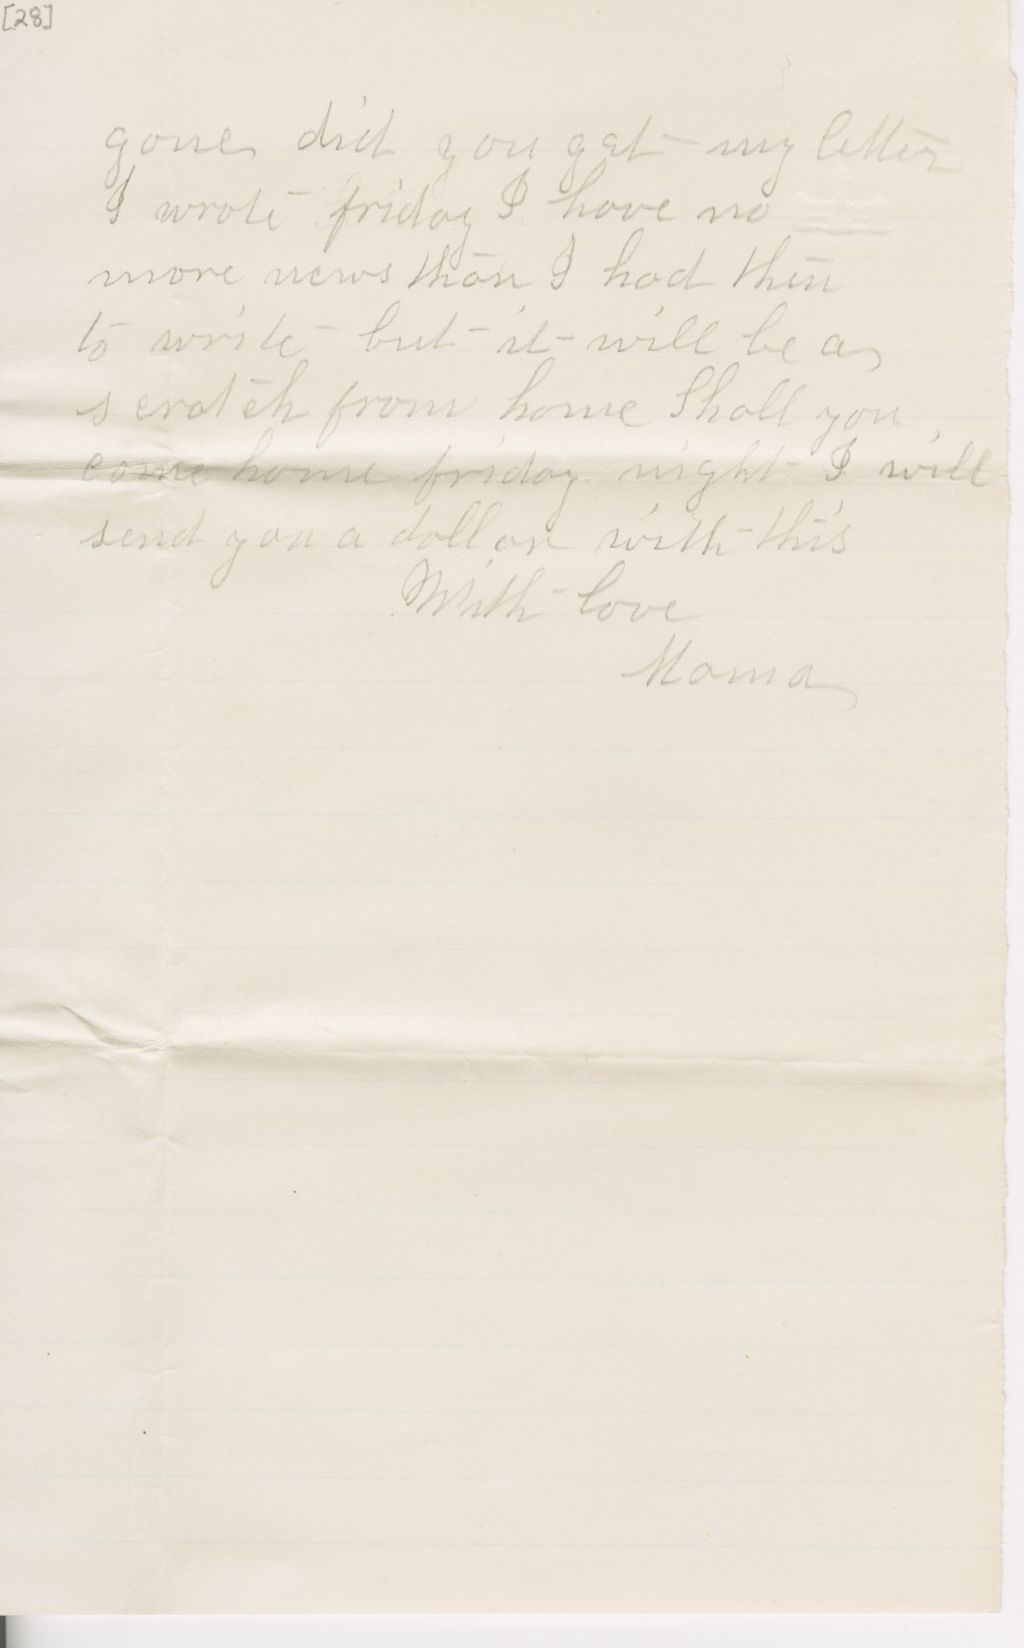 [28]
gone did you get my letter
I wrote friday I have no
more news than I had then
to write but it will be a
scratch from home Shall you
come home friday night I will
send you a dollar with this
With love
Mama